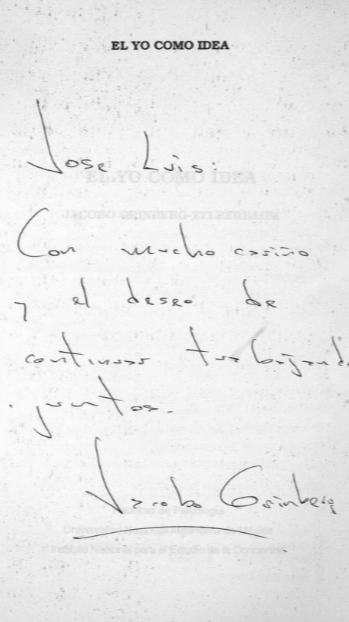 EL YO COMO IDEA
Jose Luis:
EL YO COMO IDEA
JACOBO GRINBERG-ZYLBERBAUM
Con mucho cariño
y el deseo de
continuar trabajando
juntos.
Jacobo Grinberg
Facultad de Psicología
Universidad Nacional Autónoma de México
Instituto Nacional para el Estudio de la Conciencia